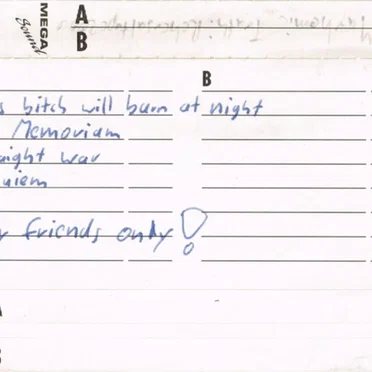 MEGA
Sound
A
B
B
s bitch will burn at night
Memoriam
night war
uiem
friends only!